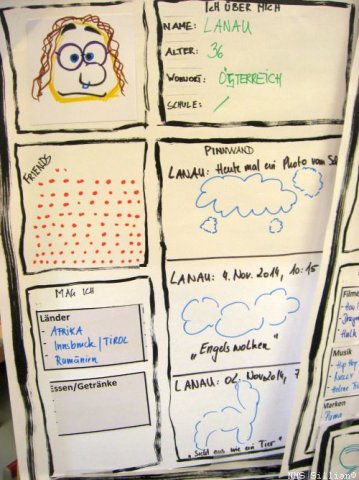 ICH ÜBER MICH
NAME: LANAU
ALTER: 36
WOHNORT: ÖSTERREICH
SCHULE: /
FRIENDS
PINNWAND
LANAU: Heute mal ein Photo vom
LANAU: 4. Nov. 2014, 10:15
„Engelswolken"
LANAU: 02. Nov. 2014, 7
„Sieht aus wie ein Tier"
MAG ICH
Länder
- AFRIKA
- Innsbruck/TIROL
- Rumänien
Essen/Getränke
Filme
Musik
- Hip Hop
Marken
Puma
NMS Sillian©